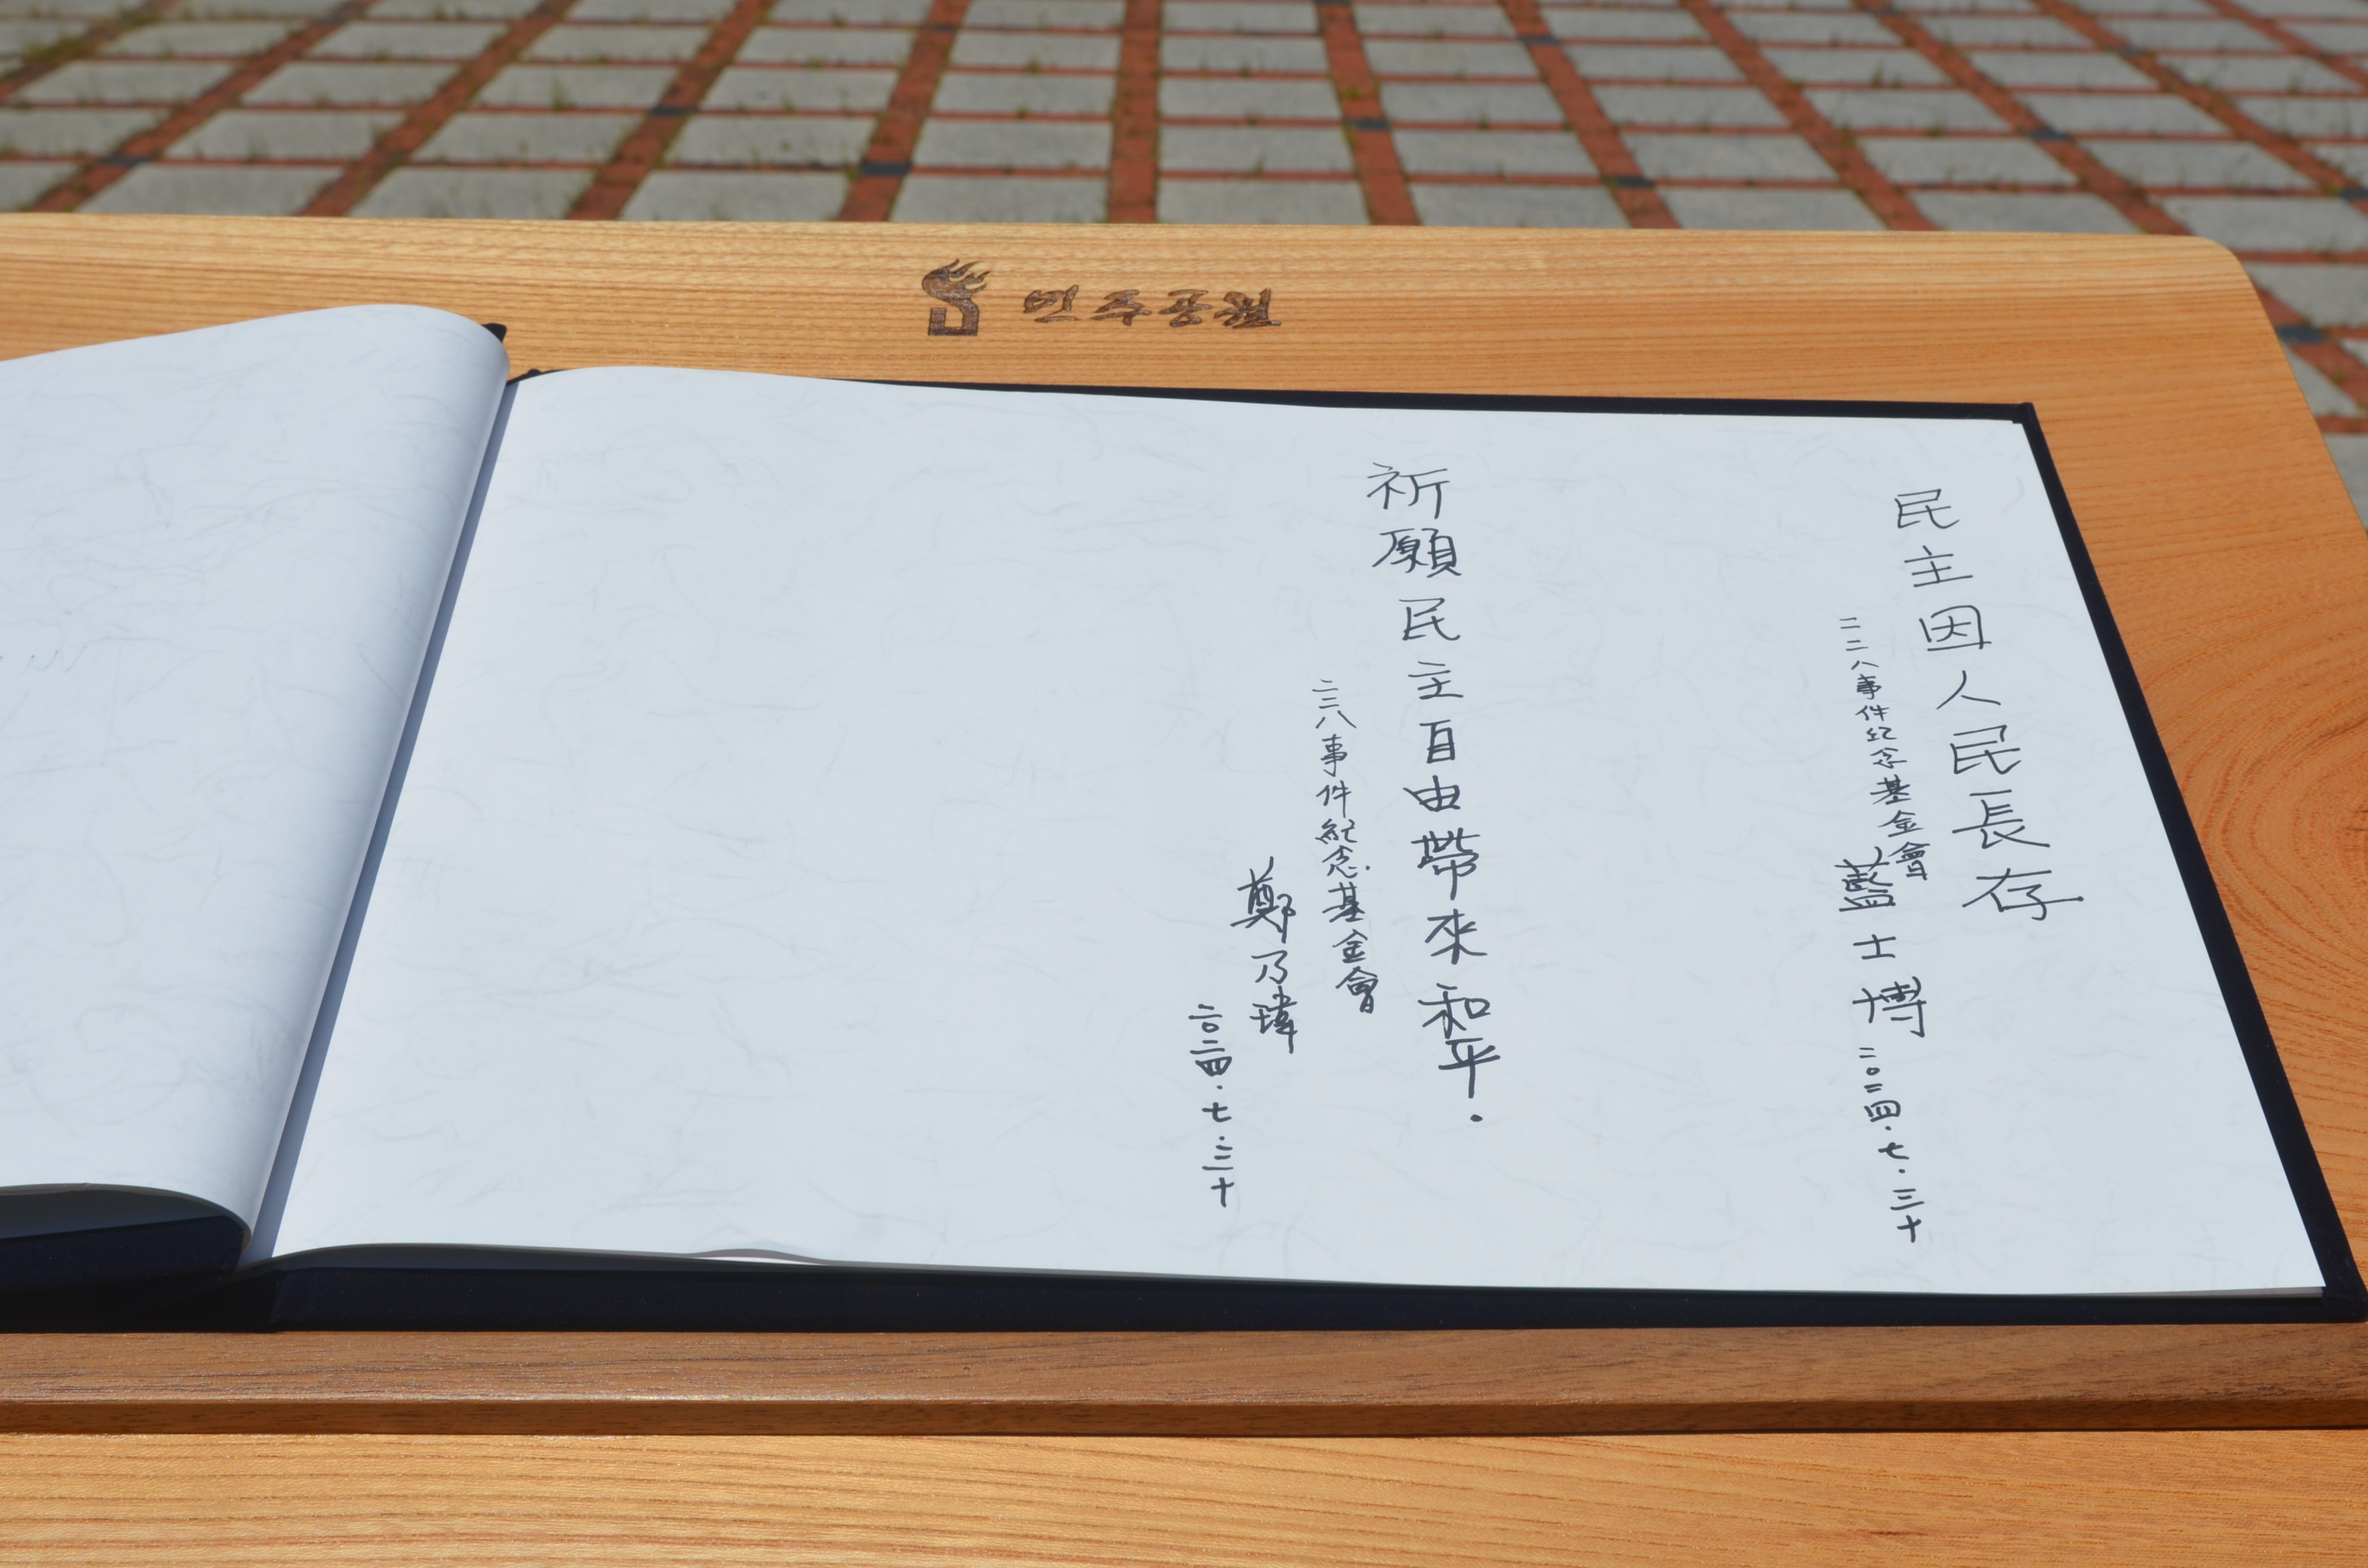 民主因人民長存
二二八事件紀念基金會
藍士博 二〇二四.七.三十
祈願民主自由帶來和平.
二二八事件紀念基金會
鄭乃瑋
二〇二四.七.三十